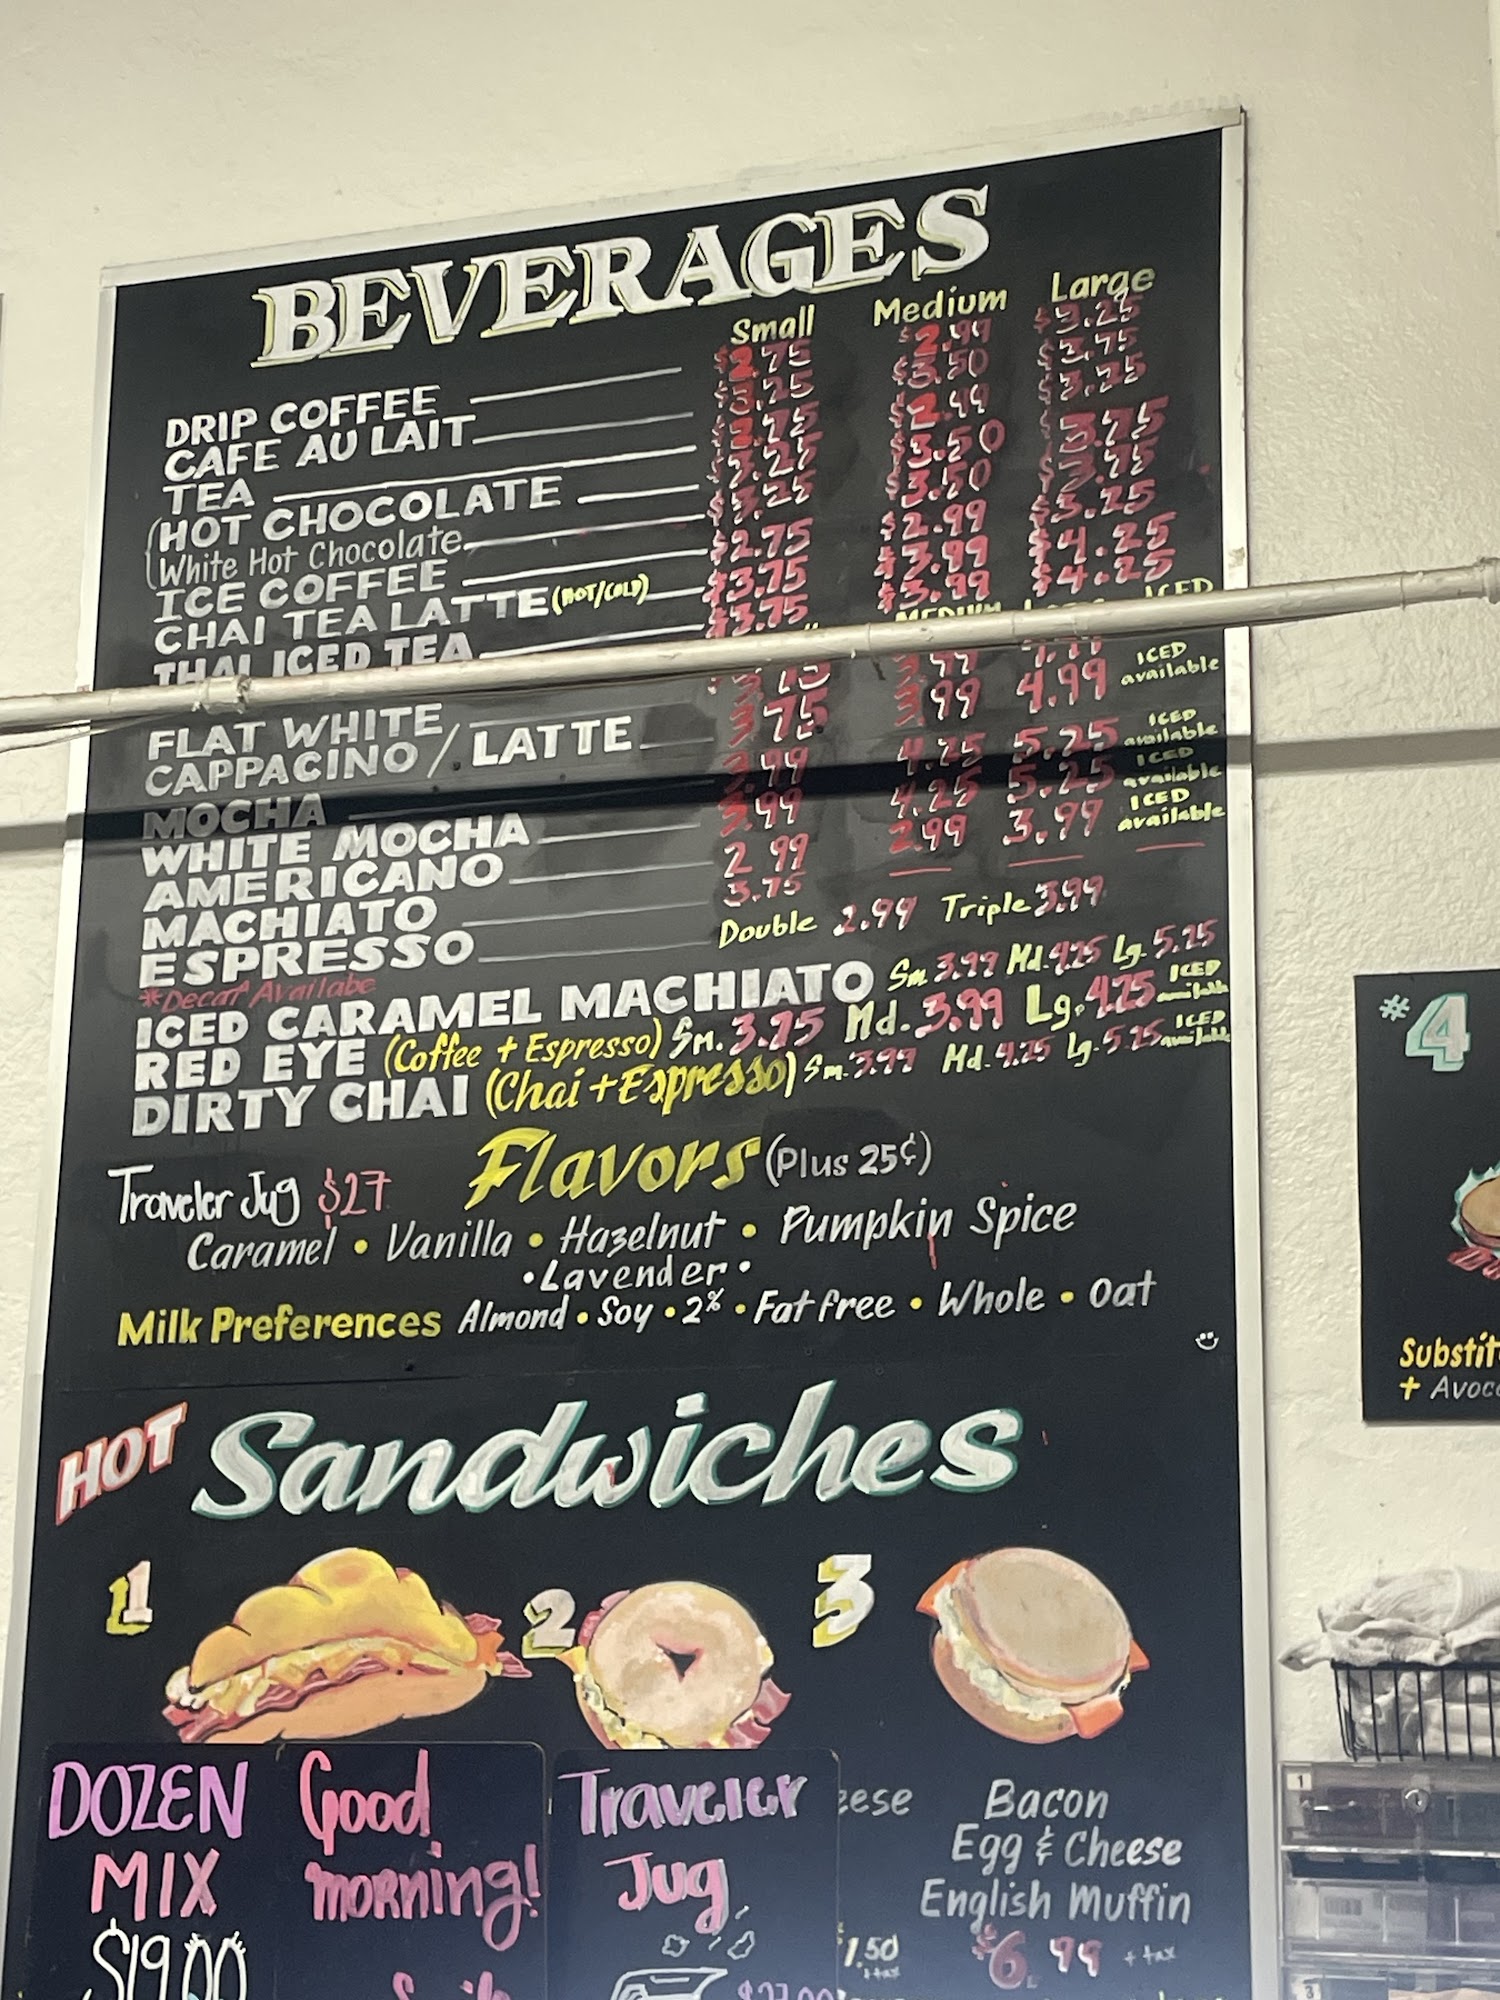 BEVERAGES
Small Medium Large
DRIP COFFEE $2.75 $2.99 $3.25
CAFE AU LAIT $3.25 $3.50 $3.75
TEA $2.75 $2.99 $3.25
HOT CHOCOLATE $3.25 $3.50 $3.75
White Hot Chocolate $3.25 $3.50 $3.75
ICE COFFEE $2.75 $2.99 $3.25
CHAI TEA LATTE (HOT/COLD) $3.75 $3.99 $4.25
THAI ICED TEA $3.75 $3.99 $4.25
MEDIUM ICED
FLAT WHITE
CAPPACINO / LATTE 3.75 3.99 4.99 ICED available
MOCHA 3.99 4.25 5.25 ICED available
WHITE MOCHA 3.99 4.25 5.25 ICED available
AMERICANO 2.99 3.99 ICED available
MACHIATO 3.75
ESPRESSO Double 2.99 Triple 3.99
*Decaf Availabe
ICED CARAMEL MACHIATO Sm 3.99 Md. 4.25 Lg. 5.25
RED EYE (Coffee + Espresso) Sm. 3.75 Md. 3.99 Lg. 4.25 ICED available
DIRTY CHAI (Chai + Espresso) Sm. 3.99 Md. 4.25 Lg. 5.25 ICED available
Flavors (Plus 25¢)
Traveler Jug $27
Caramel • Vanilla • Hazelnut • Pumpkin Spice
• Lavender •
Milk Preferences Almond • Soy • 2% • Fat free • Whole • Oat
HOT Sandwiches
1 2 3
DOZEN
MIX
$19.00
Good
morning!
Traveler
Jug
Bacon
Egg & Cheese
English Muffin
$6.99 + tax
#4
+
1
3